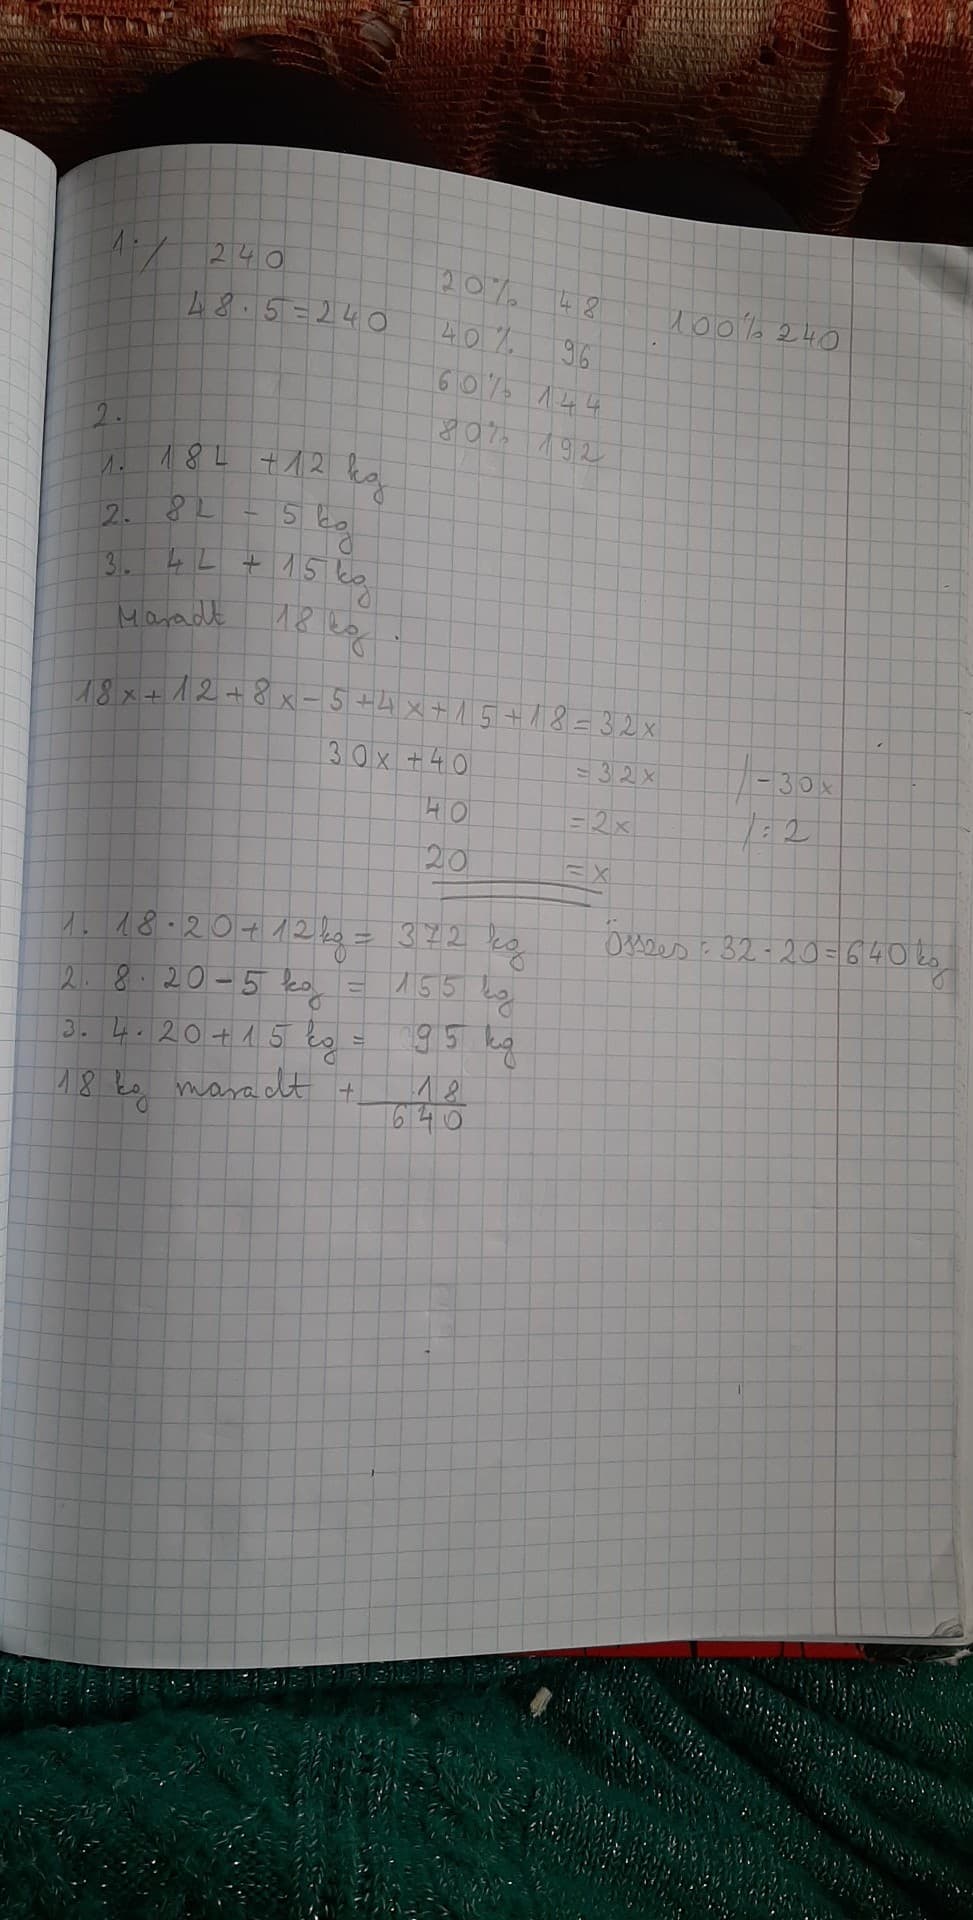 1./ 240
48·5=240
20% 48
40% 96
60% 144
80% 192
100% 240
2.
1. 18L +12 kg
2. 8L - 5 kg
3. 4L + 15 kg
Maradt 18 kg.
18x+12+8x-5+4x+15+18=32x
30x+40 =32x /-30x
40 =2x /:2
20 =x
1. 18·20+12kg= 372 kg Összes: 32·20=640 kg
2. 8·20-5 kg = 155 kg
3. 4·20+15 kg= 95 kg
18 kg maradt + 18
640